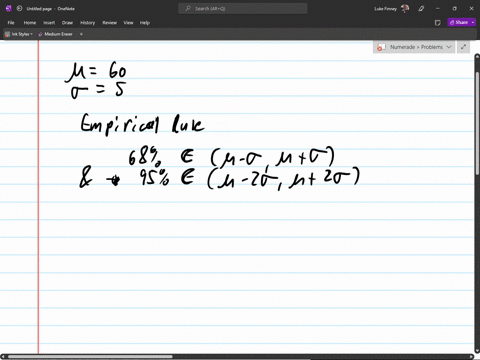 Untitled page - OneNote
Search (Alt+Q)
Luke Finney
File Home Insert Draw History Review View Help
Share
Ink Styles Medium Eraser
Numerade » Problems
μ = 60
σ = 5
Empirical Rule
68% ∈ (μ-σ, μ+σ)
& → 95% ∈ (μ-2σ, μ+2σ)